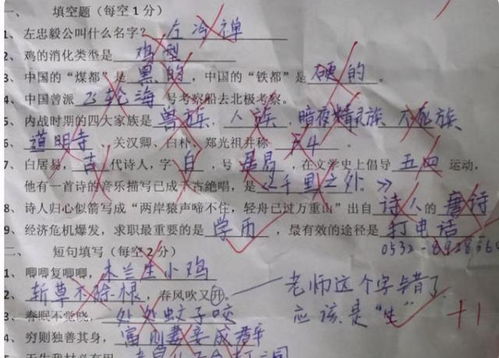 一、 填空题（每空1分）
1、左忠毅公叫什么名字？ 左冷禅
2、鸡的消化类型是 鸡型
3、中国的“煤都”是 黑的 ，中国的“铁都”是 硬的 。
4、中国曾派 飞轮海 号考察船去北极考察。
5、内战时期的四大家族是 兽族、人族、暗夜精灵族、不死族
6、道明寺、关汉卿、白朴、郑光祖并称 F4 。
7、白居易，吉 代诗人，字 白 ，号 居易 ，在文学史上倡导 五四 运动，
他有一首诗的音乐描写已成千古绝唱，是 《千里之外》
8、诗人归心似箭写成“两岸猿声啼不住，轻舟已过万重山”出自 诗人 的 唐诗
9、经济危机爆发，求职最重要的是 学历 ，最有效的途径是 打电话
二、 短句填写（每空2分）
1、唧唧复唧唧，木兰生小鸡
2、斩草不除根，春风吹又开。 老师这个字错了
3、春眠不觉晓，处处蚊子咬 应该是“生” +1
4、穷则独善其身，富则妻妾成群